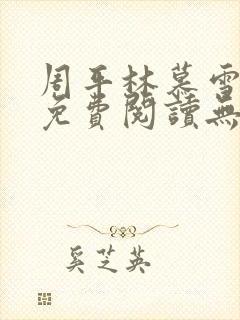 周平林慕雪
免費閱讀無
奚芝英